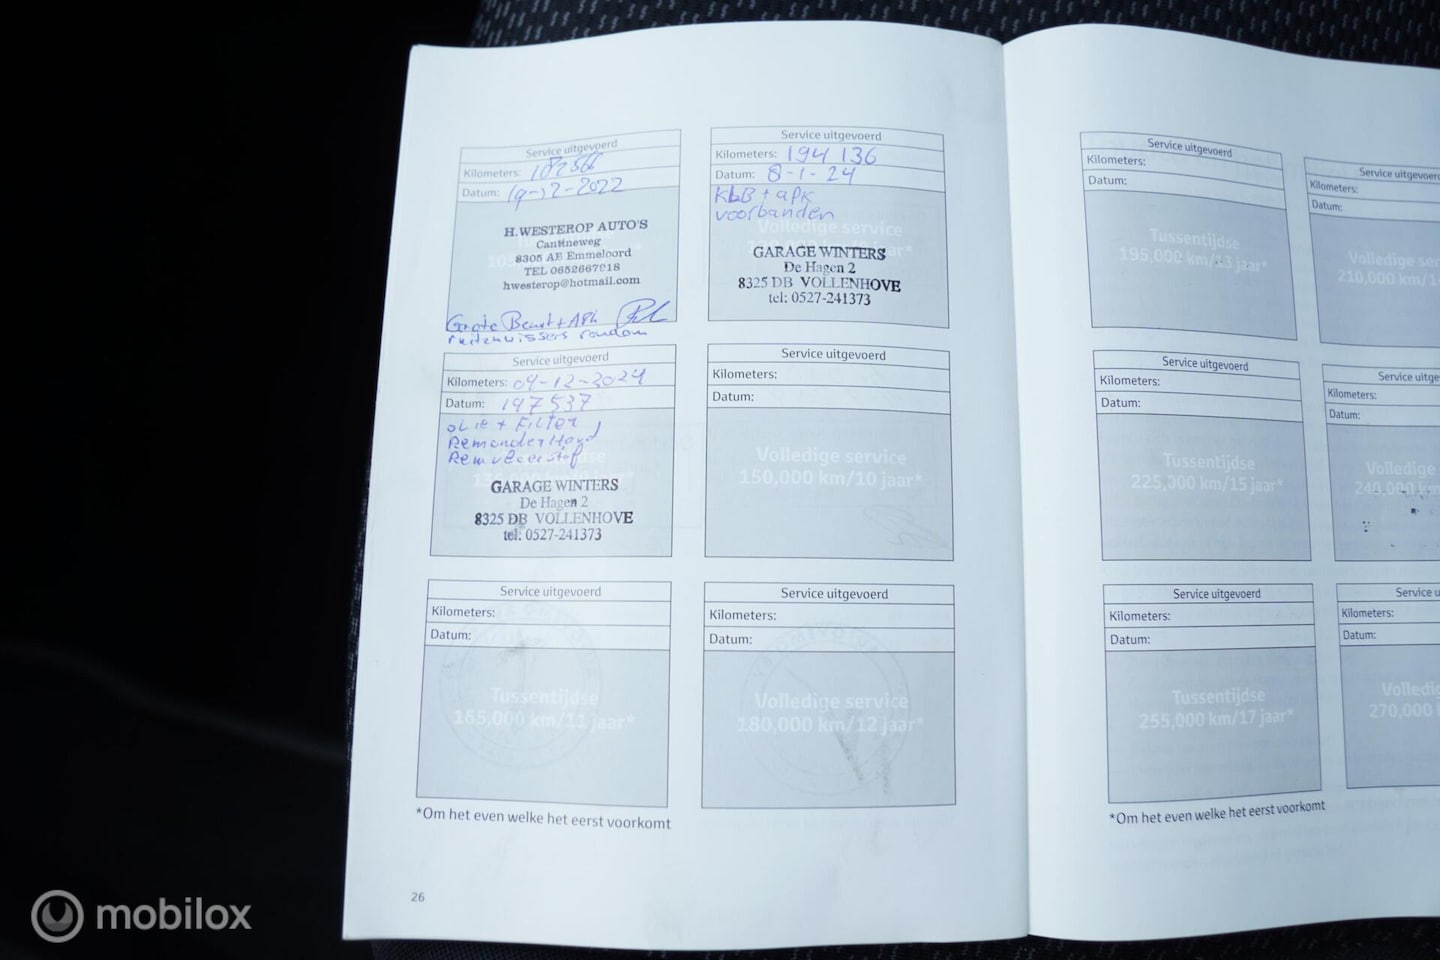 Service uitgevoerd
Kilometers: 182566
Datum: 19-12-2022
H. WESTEROP AUTO'S
Cantineweg
8305 AB Emmeloord
TEL 0652667918
hwesterop@hotmail.com
Grote Beurt + APK
ruitenwissers rondom
Service uitgevoerd
Kilometers: 194 136
Datum: 8-1-24
KLB + apk
voorbanden
Volledige service
GARAGE WINTERS
De Hagen 2
8325 DB VOLLENHOVE
tel: 0527-241373
Service uitgevoerd
Kilometers: 04-12-2024
Datum: 197537
oLie + Filter
Remonderhoud
Remvloeistof
GARAGE WINTERS
De Hagen 2
8325 DB VOLLENHOVE
tel: 0527-241373
Service uitgevoerd
Kilometers:
Datum:
Volledige service
150,000 km/10 jaar*
Service uitgevoerd
Kilometers:
Datum:
Tussentijdse
165,000 km/11 jaar*
Service uitgevoerd
Kilometers:
Datum:
Volledige service
180,000 km/12 jaar*
*Om het even welke het eerst voorkomt
26
Service uitgevoerd
Kilometers:
Datum:
Tussentijdse
195,000 km/13 jaar*
Service uitgevoerd
Kilometers:
Datum:
Volledige
210,000 km
Service uitgevoerd
Kilometers:
Datum:
Tussentijdse
225,000 km/15 jaar*
Service
Kilometers:
Datum:
Volledige
240,000 km
Service uitgevoerd
Kilometers:
Datum:
Tussentijdse
255,000 km/17 jaar*
Service
Kilometers:
Datum:
270,000
*Om het even welke het eerst voorkomt
mobilox